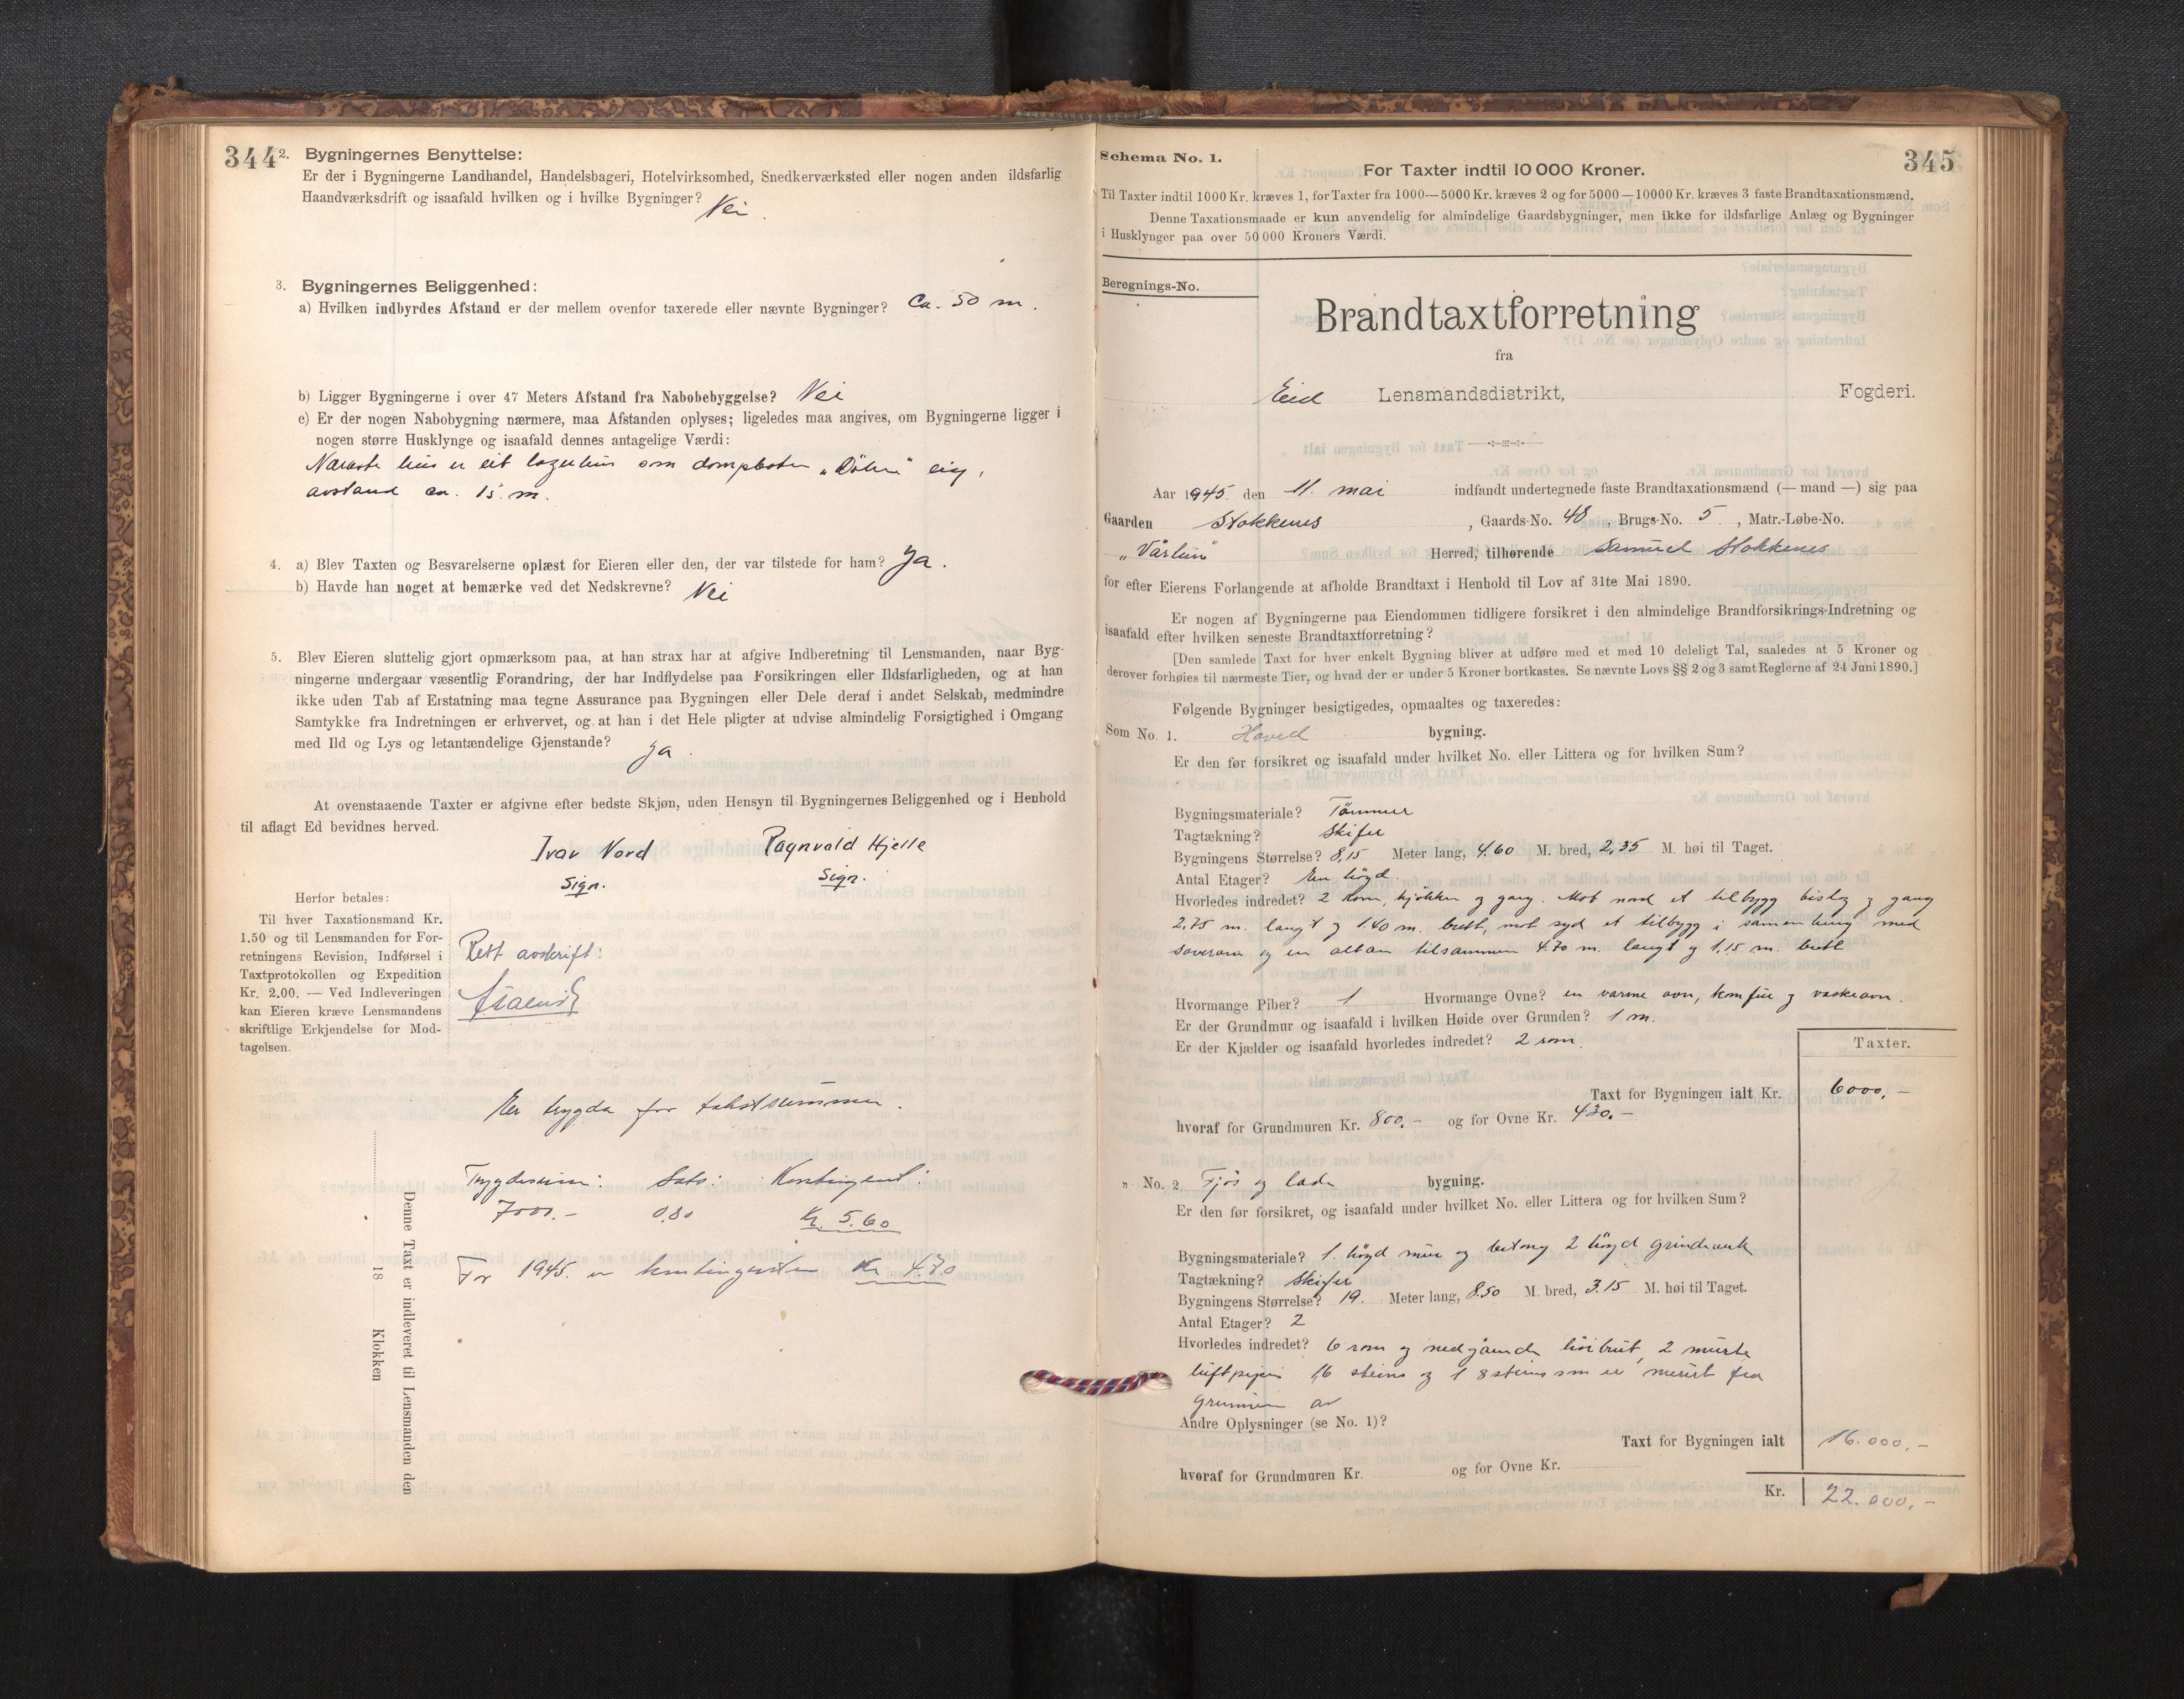 344
2. Bygningernes Benyttelse:
Er der i Bygningerne Landhandel, Handelsbageri, Hotelvirksomhed, Snedkerværksted eller nogen anden ildsfarlig
Haandværksdrift og isaafald hvilken og i hvilke Bygninger? Nei.
3. Bygningernes Beliggenhed:
a) Hvilken indbyrdes Afstand er der mellem ovenfor taxerede eller nævnte Bygninger? Ca. 50 m.
b) Ligger Bygningerne i over 47 Meters Afstand fra Nabobebyggelse? Nei
c) Er der nogen Nabobygning nærmere, maa Afstanden oplyses; ligeledes maa angives, om Bygningerne ligger i
nogen større Husklynge og isaafald dennes antagelige Værdi:
Næraste hus er eit lagerhus som dampbaten eig,
avstand ca. 15 m.
4. a) Blev Taxten og Besvarelserne oplæst for Eieren eller den, der var tilstede for ham? Ja.
b) Havde han noget at bemærke ved det Nedskrevne? Nei
5. Blev Eieren sluttelig gjort opmærksom paa, at han strax har at afgive Indberetning til Lensmanden, naar Byg-
ningerne undergaar væsentlig Forandring, der har Indflydelse paa Forsikringen eller Ildsfarligheden, og at han
ikke uden Tab af Erstatning maa tegne Assurance paa Bygningen eller Dele deraf i andet Selskab, medmindre
Samtykke fra Indretningen er erhvervet, og at han i det Hele pligter at udvise almindelig Forsigtighed i Omgang
med Ild og Lys og letantændelige Gjenstande? Ja.
At ovenstaaende Taxter er afgivne efter bedste Skjøn, uden Hensyn til Bygningernes Beliggenhed og i Henhold
til aflagt Ed bevidnes herved.
Ivar Nord Ragnvald Hjelle
sign. sign.
Herfor betales:
Til hver Taxationsmand Kr.
1.50 og til Lensmanden for For-
retningens Revision, Indførsel i
Taxtprotokollen og Expedition
Kr. 2.00. — Ved Indleveringen
kan Eieren kræve Lensmandens
skriftlige Erkjendelse for Mod-
tagelsen.
Rett avskrift:
Er trygda for takstsummen.
Trygdesum: Sats: Kontingent:
7000.- 0,80 Kr. 5.60
For 1945 er kontingenten Kr. 4.70
Denne Taxt er indleveret til Lensmanden den
18 Klokken
345
Schema No. 1.
For Taxter indtil 10 000 Kroner.
Til Taxter indtil 1000 Kr. kræves 1, for Taxter fra 1000—5000 Kr. kræves 2 og for 5000—10000 Kr. kræves 3 faste Brandtaxationsmænd.
Denne Taxationsmaade er kun anvendelig for almindelige Gaardsbygninger, men ikke for ildsfarlige Anlæg og Bygninger
i Husklynger paa over 50 000 Kroners Værdi.
Beregnings-No.
Brandtaxtforretning
fra
Eid Lensmandsdistrikt, Fogderi.
Aar 1945 den 11. mai indfandt undertegnede faste Brandtaxationsmænd (— mand —) sig paa
Gaarden Stokkenes, Gaards-No. 48, Brugs-No. 5, Matr.-Løbe-No.
Herred, tilhørende Samuel Stokkenes
for efter Eierens Forlangende at afholde Brandtaxt i Henhold til Lov af 31te Mai 1890.
Er nogen af Bygningerne paa Eiendommen tidligere forsikret i den almindelige Brandforsikrings-Indretning og
isaafald efter hvilken seneste Brandtaxtforretning?
[Den samlede Taxt for hver enkelt Bygning bliver at udføre med et med 10 deleligt Tal, saaledes at 5 Kroner og
derover forhøies til nærmeste Tier, og hvad der er under 5 Kroner bortkastes. Se nævnte Lovs §§ 2 og 3 samt Reglerne af 24 Juni 1890.]
Følgende Bygninger besigtigedes, opmaaltes og taxeredes:
Som No. 1. Hoved bygning.
Er den før forsikret og isaafald under hvilket No. eller Littera og for hvilken Sum?
Bygningsmateriale? Tømmer
Tagtækning? Skifer
Bygningens Størrelse? 8,15 Meter lang, 4.60 M. bred, 2,35 M. høi til Taget.
Antal Etager? En høgd.
Hvorledes indredet? 2 rom, kjøkken og gang. Mot nord et tilbygg bislag og gang
2.75 m. langt og 1.40 m. bredt, mot syd et tilbygg i samenheng med
soverom og en altan tilsammen 4.70 m. langt og 1.15 m. bredt
Hvormange Piber? 1 Hvormange Ovne? en varme ovn, komfur og vaskeovn.
Er der Grundmur og isaafald i hvilken Høide over Grunden? 1 m.
Er der Kjælder og isaafald hvorledes indredet? 2 rom.
Taxter.
Taxt for Bygningen ialt Kr. 6000,-
hvoraf for Grundmuren Kr. 800.- og for Ovne Kr. 430.-
" No. 2. Fjøs og lade bygning.
Er den før forsikret, og isaafald under hvilket No. eller Littera og for hvilken Sum?
Bygningsmateriale? 1. høgd mur og betong 2 høgd grindverk
Tagtækning? Skifer
Bygningens Størrelse? 19. Meter lang, 8.50 M. bred, 3.15 M. høi til Taget.
Antal Etager? 2
Hvorledes indredet? 6 rom og nedgående 2 murte
luftpiper 16 steins og 1 8 steins som er murt fra
grunnen av
Andre Oplysninger (se No. 1)?
Taxt for Bygningen ialt 16.000,-
hvoraf for Grundmuren Kr. og for Ovne Kr.
Kr. 22.000,-